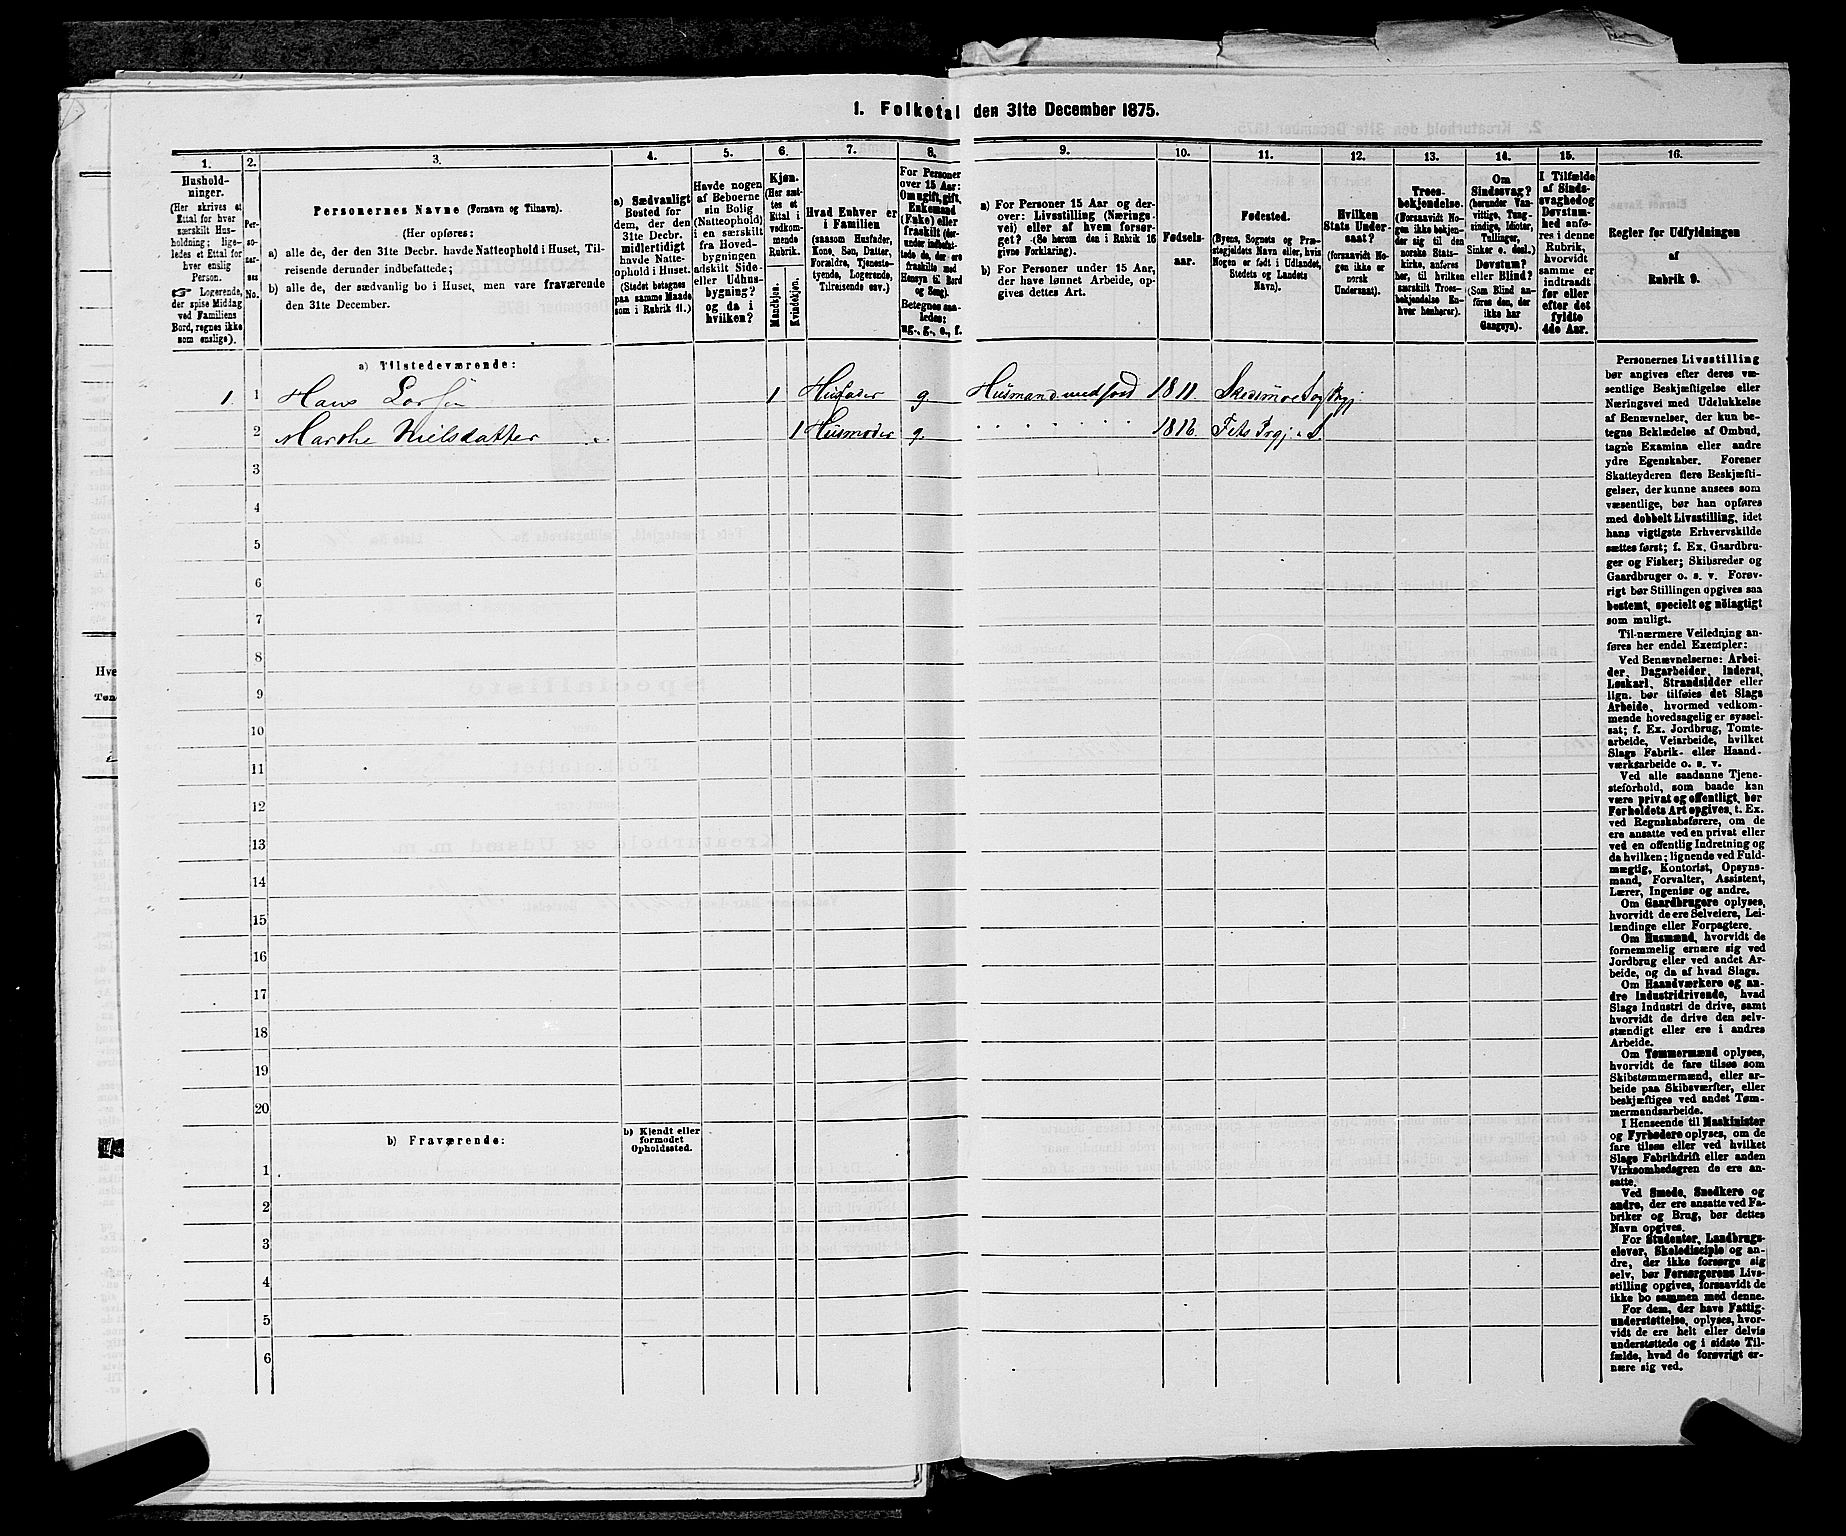 1. Folketal den 31te December 1875.
1.
2.
3.
4.
5.
6.
7.
8.
9.
10.
11.
12.
13.
14.
15.
16.
Hushold-
ninger.
(Her skrives et
Ettal for hver
særskilt Hus-
holdning; lige-
ledes et Ettal for
hver enslig
Person.
☞ Logerende,
der spise Middag
ved Familiens
Bord, regnes ikke
som enslige).
Per-
so-
ner-
nes
No.
Personernes Navne (Fornavn og Tilnavn).
(Her opføres:
a) alle de, der den 31te Decbr. havde Natteophold i Huset, Til-
reisende derunder indbefattede;
b) alle de, der sædvanlig bo i Huset, men vare fraværende
den 31te December.
a) Sædvanligt
Bosted for
dem, der den
31te Decbr.
midlertidigt
havde Natte-
ophold i Huset.
(Stedet betegnes
paa samme Maade
som i Rubrik 11.)
Havde nogen
af Beboerne
sin Bolig
(Natteophold)
i en særskilt
fra Hoved-
bygningen
adskilt Side-
eller Udhus-
bygning?
og da i
hvilken?
Kjøn.
(Her sæt-
tes et
Ettal i
vedkom-
mende
Rubrik.
Mandkjøn.
Kvindekjøn.
Hvad Enhver er
i Familien
(saasom Husfader,
Kone, Søn, Datter,
Forældre, Tjeneste-
tyende, Logerende,
Tilreisende osv.)
For Personer
over 15 Aar:
Om ugift, gift,
Enkemand
(Enke) eller
fraskilt (der-
under indbefat-
tede de, der ere
fraskilte med
Hensyn til Bord
og Seng).
Betegnes saa-
ledes:
ug., g., e., f.
a) For Personer 15 Aar og der-
over: Livsstilling (Nærings-
vei) eller af hvem forsør-
get? (Se herom den i Rubrik 16
givne Forklaring).
b) For Personer under 15 Aar,
der have lønnet Arbeide, op-
gives dettes Art.
Fødsels-
aar.
Fødested.
(Byens, Sognets og Præ-
stegjeldets Navn eller, hvis
Nogen er født i Udlandet,
Stedets og Landets
Navn).
Hvilken
Stats Under-
saat?
(forsaavidt No-
gen ikke er
norsk
Undersaat).
Troes-
bekjendelse.
(Forsaavidt No-
gen ikke bekjen-
der sig til den
norske Stats-
kirke, anføres
her, til hvilken
særskilt Troes-
bekjendelse En-
hver henhører).
Om
Sindssvag?
(herunder Van-
vittige, Tung-
sindige, Idioter,
Tullinger,
Sinker o. desl.)
Døvstum?
eller Blind?
(Som Blind an-
føres den, der
ikke har
Gangsyn).
I Tilfælde
af Sinds-
svaghed og
Døvstum-
hed anfø-
res i denne
Rubrik,
hvorvidt
samme er
indtraadt
før eller
efter det
fyldte
4de Aar.
Regler for Udfyldningen
af
Rubrik 9.
a) Tilstedeværende:
1. 1 Hans Larsen 1 Husfader g Husmand med Jord 1811. Skedsmoe Sogn
2 Marthe Nielsdatter 1 Husmoder g. 1816. Fets
3
4
5
6
7
8
9
10
11
12
13
14
15
16
17
18
19
20
b) Fraværende:
b) Kjendt eller
formodet
Opholdssted.
1
2
3
4
5
6
Personernes Livsstilling
bør angives efter deres væ-
sentlige Beskjæftigelse eller
Næringsvei med Udelukkelse
af Benævnelser, der kun be-
tegne Beklædelse af Ombud,
tagne Examina eller andre
ydre Egenskaber. Forener
Skatteyderen flere Beskjæfti-
gelser, der kunne ansees som
væsentlige, bør han opføres
med dobbelt Livsstilling, idet
hans vigtigste Erhvervskilde
sættes først; f. Ex. Gaardbru-
ger og Fisker; Skibsreder og
Gaardbruger o. s. v. Forøv-
rigt bør Stillingen opgives saa
bestemt, specielt og nøiagtigt
som muligt.
Til nærmere Veiledning an-
føres her endel Exempler:
Ved Benævnelserne: Arbei-
der, Dagarbeider, Inderst,
Løskarl, Strandsidder eller
lign. bør tilføies det Slags
Arbeide, hvormed vedkom-
mende hovedsagelig er syssel-
sat; f. Ex. Jordbrug, Tomte-
arbeide, Veiarbeide, hvilket
Slags Fabrik- eller Haand-
værksarbeide o. s. v.
Ved alle saadanne Tjene-
steforhold, som baade kan
være privat og offentligt, bør
Forholdets Art opgives, t. Ex.
ved Regnskabsførere, om de
ere ansatte ved en privat eller
ved en offentlig Indretning og
da hvilken; lignende ved Fuld-
mægtig, Kontorist, Opsyns-
mand, Forvalter, Assistent,
Lærer, Ingeniør og andre.
Om Gaardbrugere oplyses,
hvorvidt de ere Selveiere, Lei-
lændinge eller Forpagtere.
Om Husmænd, hvorvidt de
fornemmelig ernære sig ved
Jordbrug eller ved andet Ar-
beide, og da af hvad Slags.
Om Haandværkere og an-
dre Industridrivende, hvad
Slags Industri de drive, samt
hvorvidt de drive den selv-
stændigt eller ere i andres
Arbeide.
Om Tømmermænd oplyses,
hvorvidt de fare tilsøs som
Skibstømmermænd, eller ar-
beide paa Skibsværfter, eller
beskjæftiges ved andet Tøm-
mermandsarbeide.
I Henseende til Maskinister
og Fyrbødere oplyses, om de
fare tilsøs eller ved hvilket
Slags Fabrikdrift eller anden
Virksomhedsgren de ere an-
satte.
Ved Smede, Snedkere og
andre, der ere ansatte ved Fa-
briker og Brug, bør dettes
Navn opgives.
For Studenter, Landbrugs-
elever, Skoledisciple og an-
dre, der ikke forsørge sig
selv, bør Forsørgerens Livs-
stilling opgives, forsaavidt de
ikke bo sammen med denne.
For dem, der have Fattig-
understøttelse, oplyses, hvor-
vidt de ere helt eller delvis
understøttede og i sidste Til-
fælde, hvad de forøvrigt er-
nære sig ved.